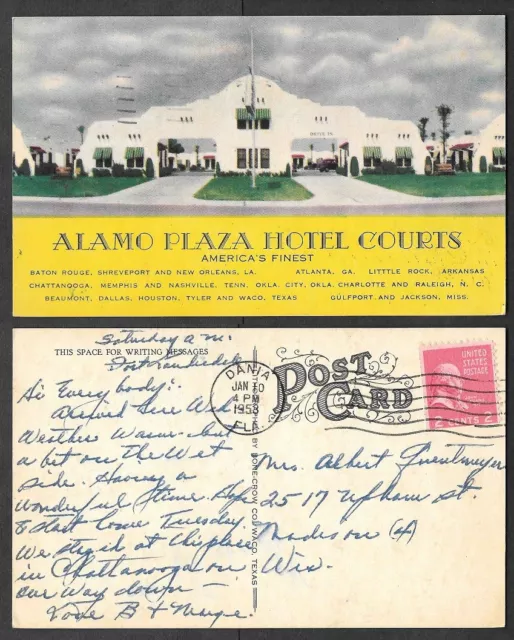 ALAMO PLAZA HOTEL COURTS
AMERICA'S FINEST
BATON ROUGE, SHREVEPORT AND NEW ORLEANS, LA. ATLANTA, GA. LITTTLE ROCK, ARKANSAS
CHATTANOOGA, MEMPHIS AND NASHVILLE, TENN. OKLA. CITY, OKLA. CHARLOTTE AND RALEIGH, N. C.
BEAUMONT, DALLAS, HOUSTON, TYLER AND WACO, TEXAS GULFPORT AND JACKSON, MISS.
Saturday a.m.
THIS SPACE FOR WRITING MESSAGES
Fort Lauderdale
Hi Every body:
Arrived here Wed
Weather Warm-but
a bit on the Wet
side. Having a
Wonderful time. Hope
to start home Tuesday.
We stayed at this place
in Chattanooga on
our Way down —
Love B + Marge.
DANIA
JAN 10
4 PM
1958
FLA.
POST CARD
UNITED
STATES
POSTAGE
2 CENTS 2
BY CO., WACO, TEXAS
Mrs. Albert
2517 Upham St.
Madison (4)
Wis.